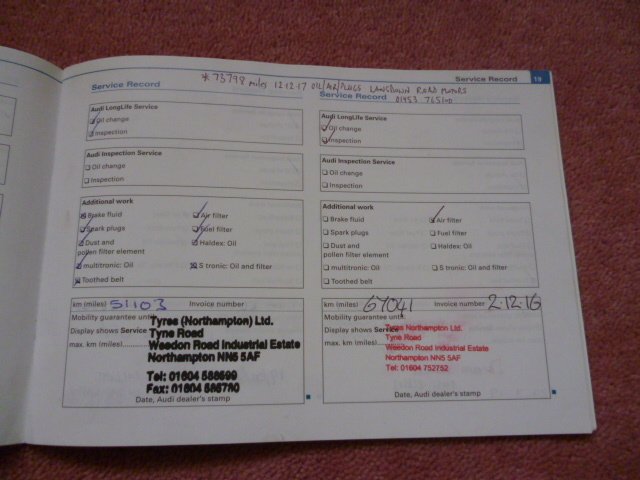 * 73798 miles 12-12-17 OIL/AIR/PLUGS LANSDOWN ROAD MOTORS
01453 765100
Service Record 19
Service Record
Service Record
Audi LongLife Service
Oil change
Inspection
Audi Inspection Service
Oil change
Inspection
Additional work
Brake fluid Air filter
Spark plugs Fuel filter
Dust and Haldex: Oil
pollen filter element
multitronic: Oil S tronic: Oil and filter
Toothed belt
km (miles) 51103 Invoice number
Mobility guarantee until
Display shows Service
max. km (miles)
Tyres (Northampton) Ltd.
Tyne Road
Weedon Road Industrial Estate
Northampton NN5 5AF
Tel: 01604
Fax: 01604
Date, Audi dealer's stamp
Audi LongLife Service
Oil change
Inspection
Audi Inspection Service
Oil change
Inspection
Additional work
Brake fluid Air filter
Spark plugs Fuel filter
Dust and Haldex: Oil
pollen filter element
multitronic: Oil S tronic: Oil and filter
Toothed belt
km (miles) 67041 Invoice number 2-12-16
Mobility guarantee until
Display shows Service
max. km (miles)
Tyres Northampton Ltd.
Tyne Road
Weedon Road Industrial Estate
Northampton NN5 5AF
Tel: 01604 752752
Date, Audi dealer's stamp